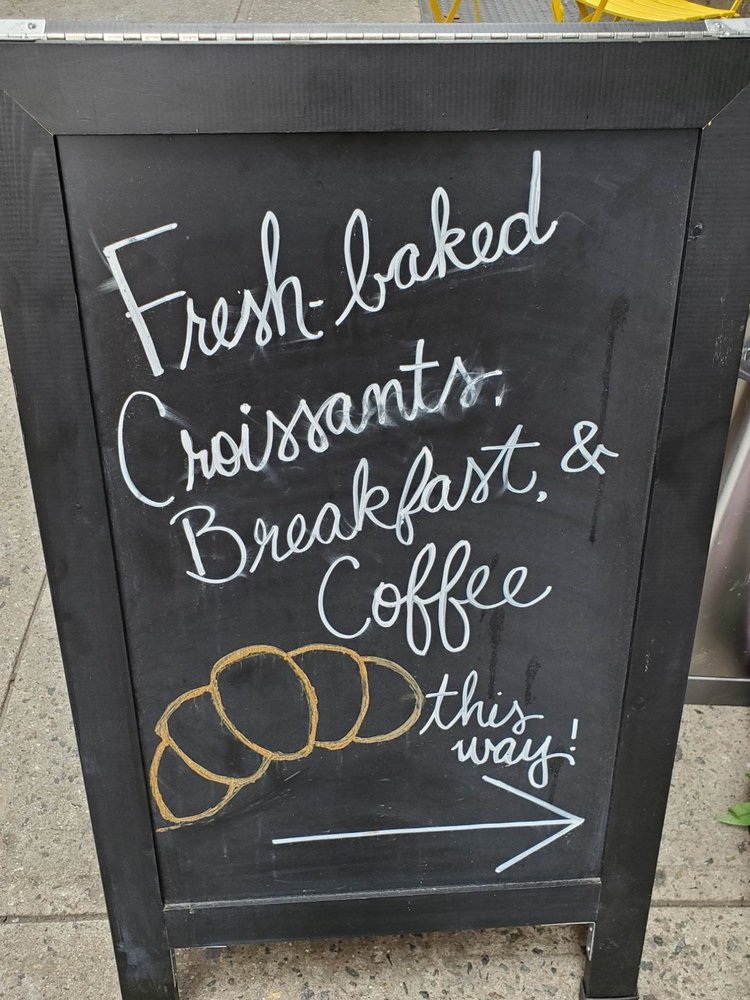 Fresh-baked
Croissants,
Breakfast, &
Coffee
this
way!